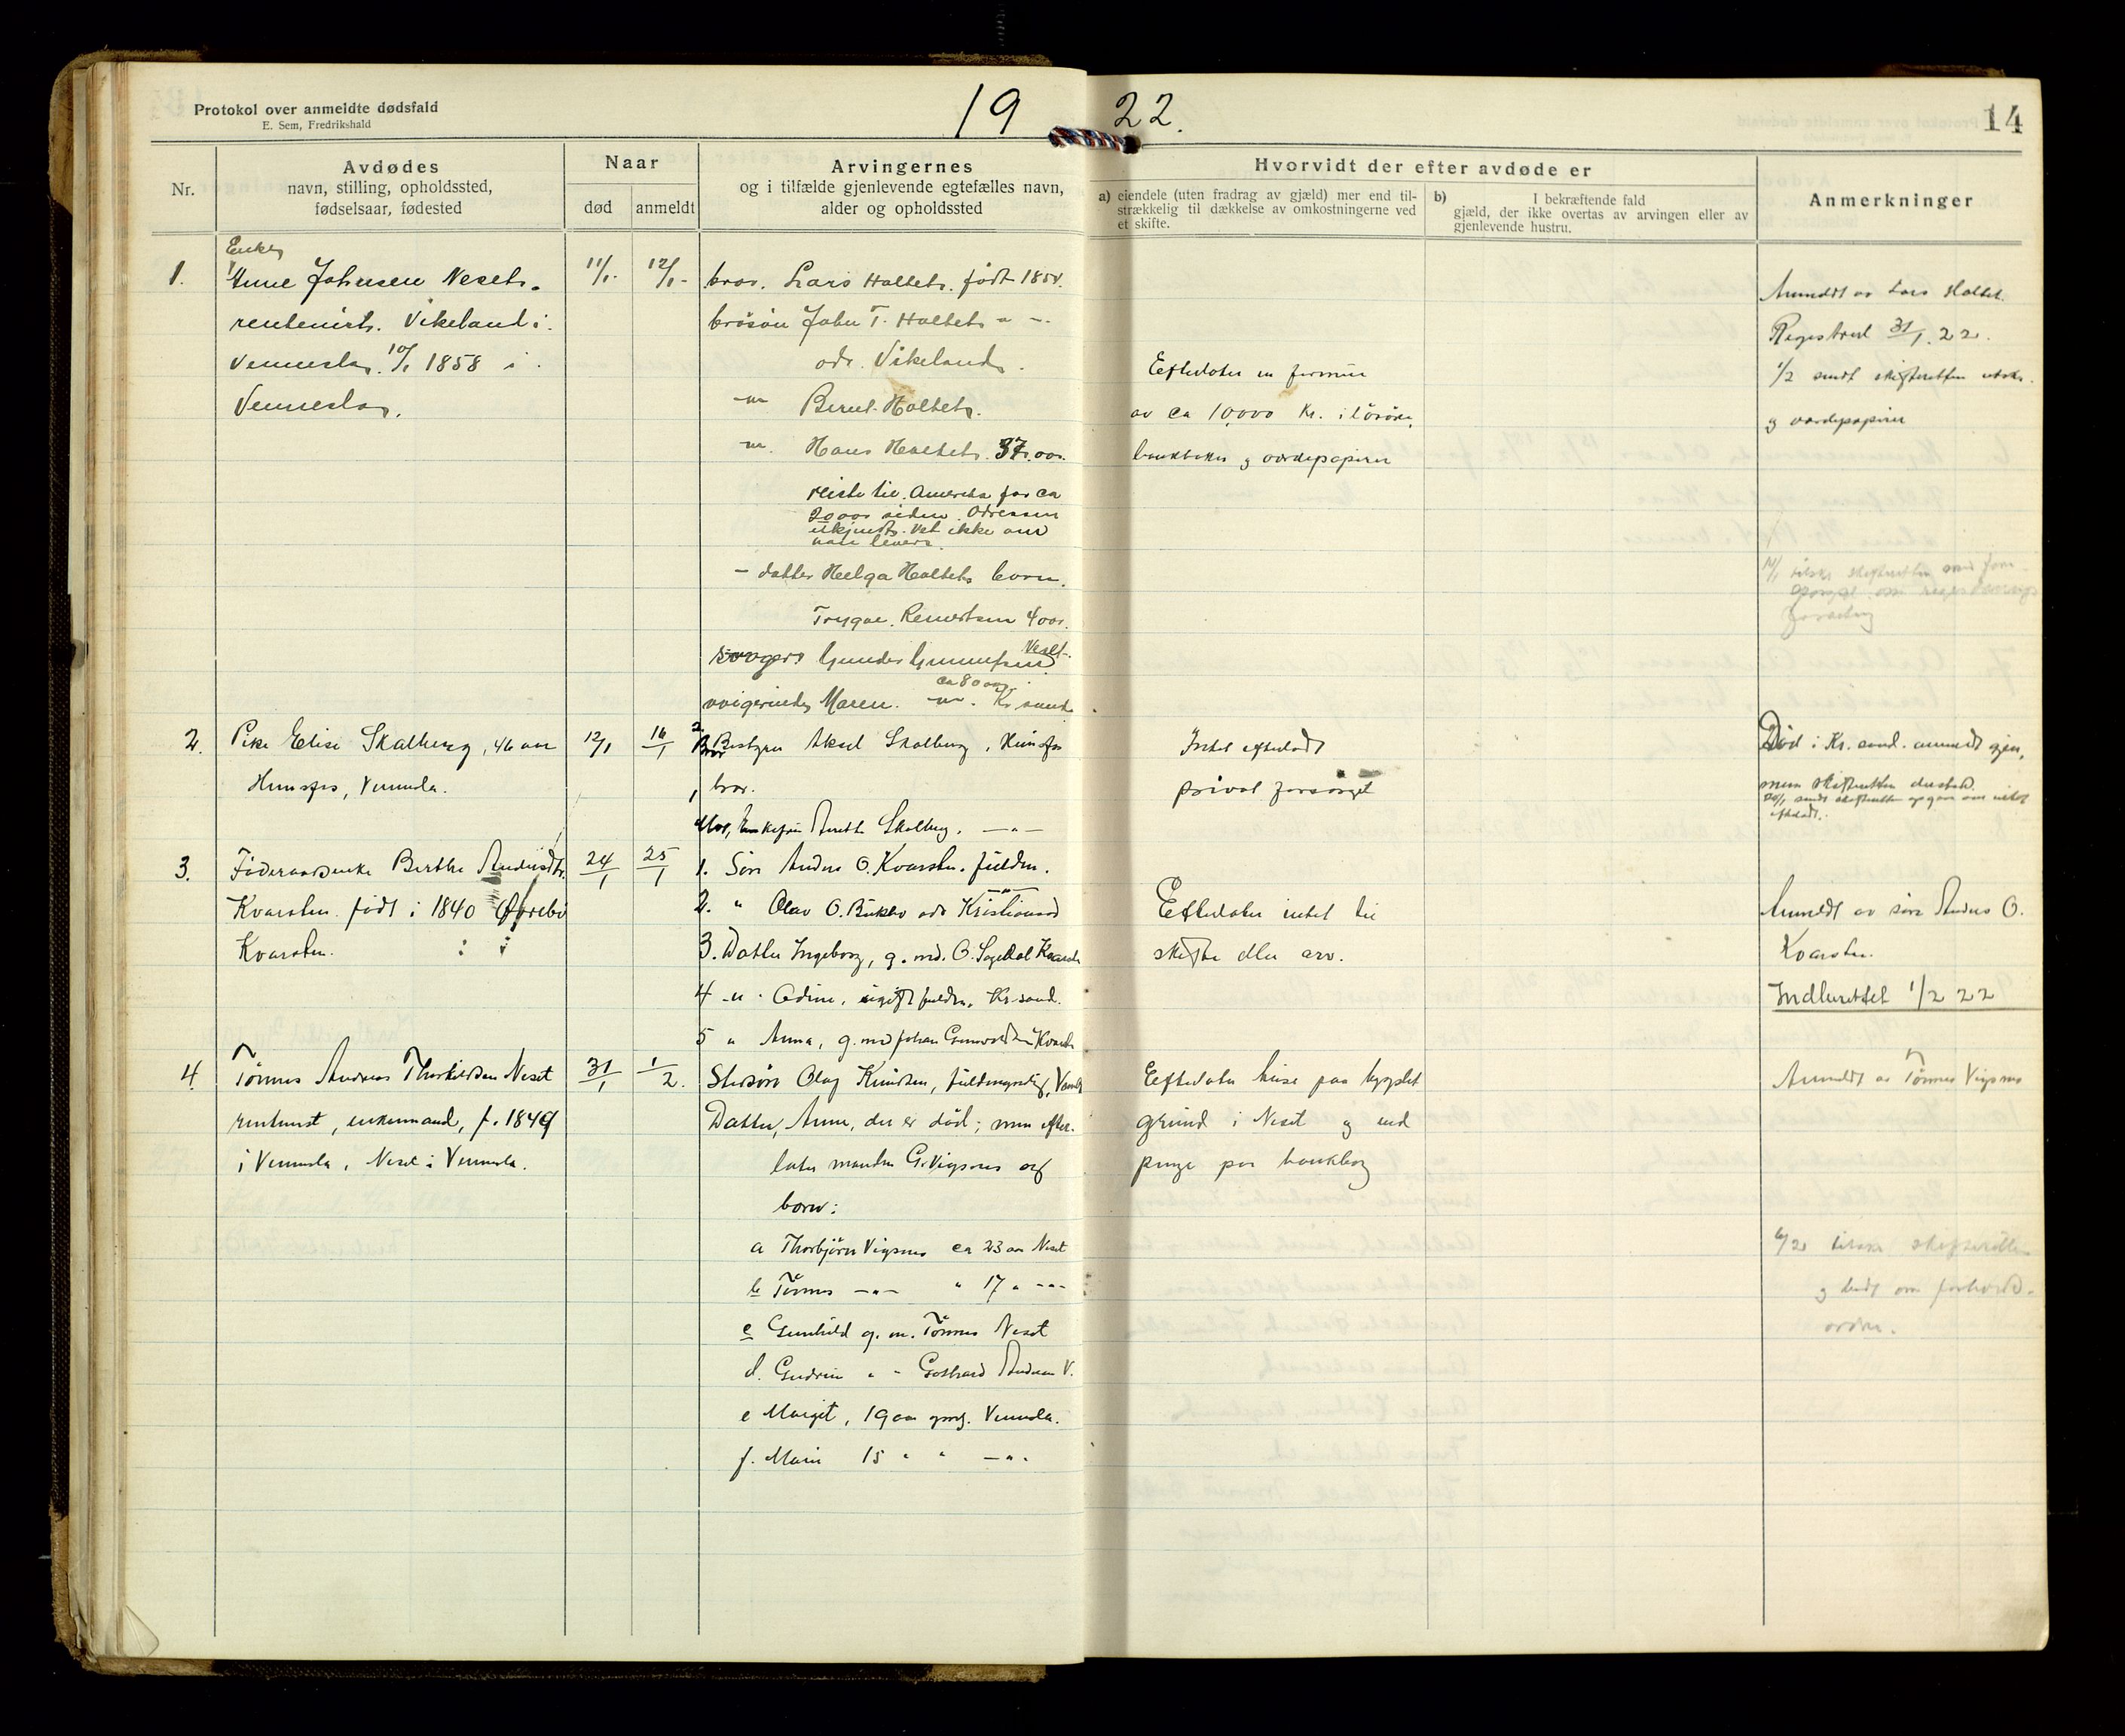 Protokol over anmeldte dødsfald
E. Sem, Fredrikshald
1922.
14
Nr.
Avdødes
navn, stilling, opholdssted,
fødselsaar, fødested
Naar
død
anmeldt
Arvingernes
og i tilfælde gjenlevende egtefælles navn,
alder og opholdssted
Hvorvidt der efter avdøde er
a) eiendele (uten fradrag av gjæld) mer end til-
strækkelig til dækkelse av omkostningerne ved
et skifte.
b) I bekræftende fald
gjæld, der ikke overtas av arvingen eller av
gjenlevende hustru.
Anmerkninger
1.
Enke
Anne Johnsen Neset.
rentenist. Vikeland i
Vennesla. 10/1 1858 i
Vennesla.
11/1.
12/1.
bror. Lars Holtet. født 1854.
brösön John T. Holtet
adr. Vikeland.
Bernt. Holtet.
Hans Holtet. 37. aar.
reiste til Amerika for ca
20 aar siden. Adressen
ukjendt. Vet ikke om
han lever.
- datter Helga Holtets barn.
Trygve. Reinertsen 4 aar.
svoger Gunder Gunnufsen Neset.
svigerinde Maren. ca 80 aar. Kr sand
Efterlater en formue
av ca 10,000 Kr. i lösöre,
bankbøker og værdepapirer
Anmeldt av Lars Holtet.
Registrert 31/1. 22.
1/2 sendt skifteretten utskr.
og værdepapirer
2.
Pike Elise Skalberg, 46 aar
Hunsfos, Vennesla.
12/1
16/1
Bror Bestyrer Aksel Skalberg, Hunsfos
bror.
Mor, Enkefru Anette Skalberg. -"-
Intet efterladt
privat forsörget
Död i Kr. sand. anmeldt gjen-
nem skifteretten dersteds.
20/1 sendt skifteretten opgave om intet
efterladt.
3.
Föderaadsenke Berthe Andersdtr.
Kvarsten født i 1840 Øvrebö
Kvarsten.
24/1
25/1
1. Sön Anders O. Kvarsten. fuldm.
2. " Olav O. adr Kristiansand
3. Datter Ingeborg, g. md. O. Sagedal Kvarsten
4 -"- Odine, ugift fuldm. Kr-sand.
5 " Anna, g. med Johan Kvarsten
Efterlater intet til
skifte eller arv.
Anmeldt av sön Anders O.
Kvarsten.
Indberettet 1/2 22
4.
Tönnes Andreas Thorkildsen Neset
rentenist, enkemand, f. 1849
i Vennesla, Neset i Vennesla.
31/1
1/2.
Stedsön Olaf Knudsen, fuldmyndig, Vennesla
Datter, Anne, der er död; men efter-
later manden G. Vigsnes og
barn:
a Thorbjörn Vigsnes ca 23 aar Neset
b Tönnes -"- " 17 " -"-
c Gunhild g. m. Tönnes Neset
d. Gudrun " - Gothard Andersen V.
e Margit, 19 aar Vennesla.
f. Marie 15 " " -"-
Efterlater huse paa bygslet
grund i Neset og endel
penge paa bankbog
Anmeldt av Tönnes Vigsnes
6/2 tilskr skifteretten
og bedt om forhold-
ordre.